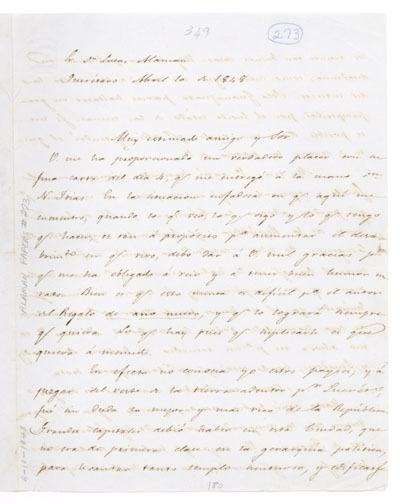 349
273
Sr. Dn. Lucas Alaman
Querétaro Abril 10 de 1848
Muy estimado amigo y Sor.
V. me ha proporcionado un verdadero placer con su
fina carta del día 4, q. me entregó á la mano
N. En la situacion enfadosa en q. aquí me
encuentro, quando lo q. veo, lo q. oigo y lo q. tengo
q. hacer, es á propósito pa. aumentar el
en q. vivo, debo dar á V. mil gracias pr.
q. me ha obligado á reir y á tener buen humor un
rato. Bien es q. esto nunca es dificil pa. el autor
el Regalo de año nuevo, y q. lo logrará siempre
q. quiera. Lo q. hay pues q. suplicarle es que
quiera á menudo.
En efecto no conocia yo estos payses, y á
juzgar del resto de la tierra adentro pr. Querétaro
fué sin duda lo mejor y mas rico de la República.
Grandes capitales debió haber en esta Ciudad, que
no era de primera clase en la gerarquia politica,
para levantar tanto templo suntuoso, y edificarse
180
ALAMAN PAPERS # 273
4-10-1848